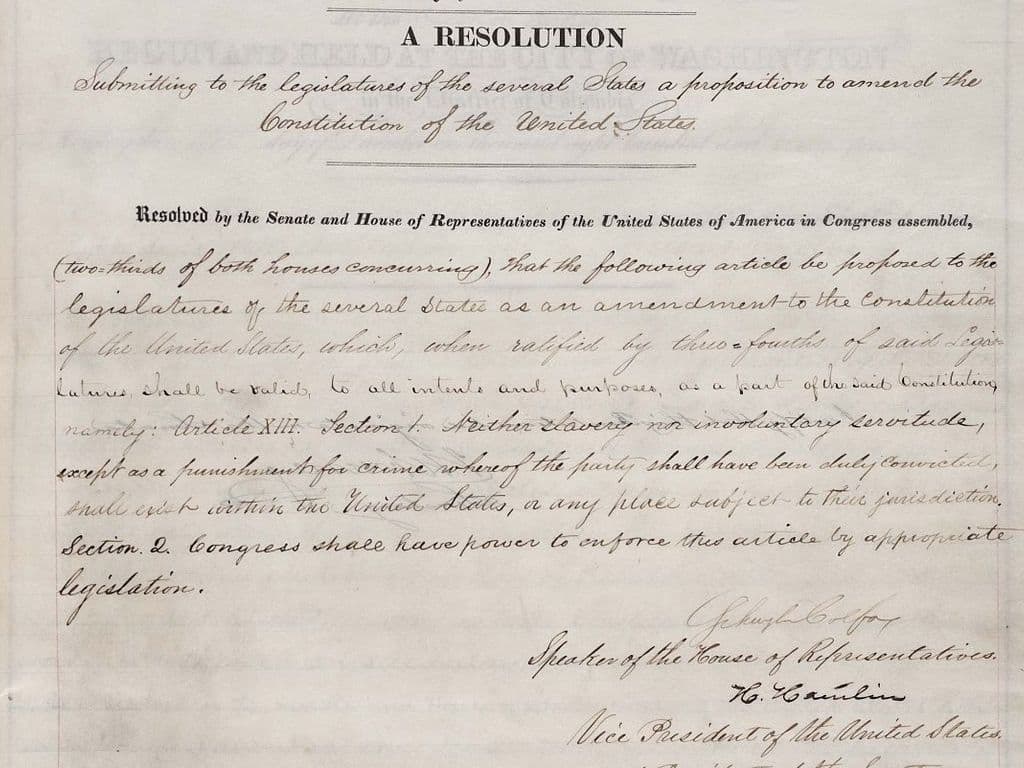 A RESOLUTION
Submitting to the legislatures of the several States a proposition to amend the
Constitution of the United States.
Resolved by the Senate and House of Representatives of the United States of America in Congress assembled,
(two-thirds of both houses concurring), that the following article be proposed to the
legislatures of the several States as an amendment to the Constitution
of the United States, which, when ratified by three-fourths of said Legis-
latures, shall be valid, to all intents and purposes, as a part of the said Constitution,
namely: Article XIII. Section 1. Neither slavery nor involuntary servitude,
except as a punishment for crime whereof the party shall have been duly convicted,
shall exist within the United States, or any place subject to their jurisdiction.
Section. 2. Congress shall have power to enforce this article by appropriate
legislation.
Schuyler Colfax
Speaker of the House of Representatives.
H. Hamlin
Vice President of the United States,